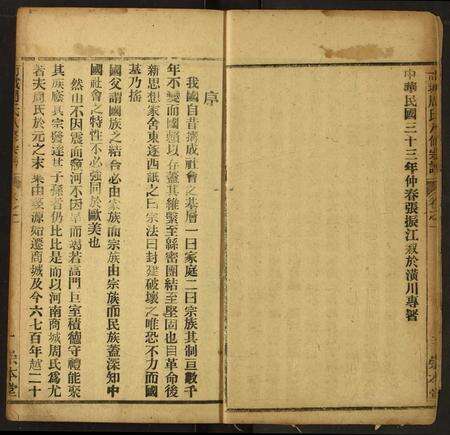 中華民國三十三年仲春張振江敍於潢川專署
序
我國自昔搆成社會之基層一曰家庭二曰宗族其制亘數千
年不變而國賴以存蓋其維繫至緜密團結至堅固也自革命後
新思想家舍東逐西詆之曰宗法曰封建破壞之唯恐不力而國
基乃搖
國父謂國族之結合必由家族而宗族由宗族而民族蓋深知中
國社會之特性不必強同於歐美也
然山不因震而顏河不因旱而竭若高門巨室積德守禮能聚
其族廕其宗發逹其子孫者仍比比是而以河南商城周氏為尤
著夫周氏於元之末葉由婺源始遷商城及今六七百年越二十
崇本堂